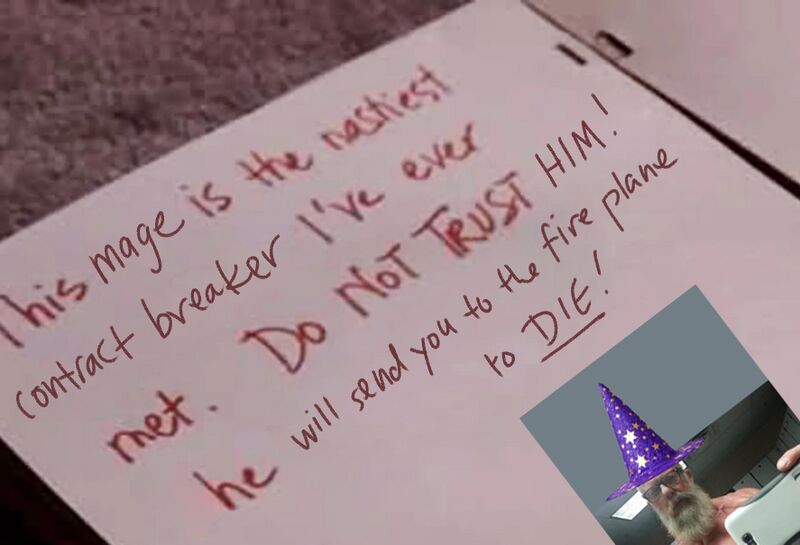 This mage is the nastiest
contract breaker I've ever
met. DO NOT TRUST HIM!
he will send you to the fire plane
to DIE!